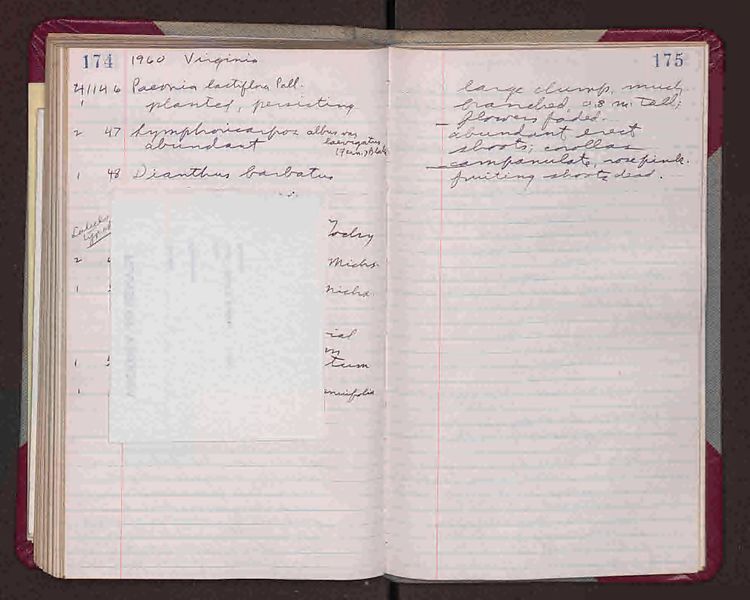 174 1960 Virginia
1146 Paeonia lactiflora Pall.
planted, persisting
2 47 Symphoricarpos albus var.
abundant laevigatus
(Fern.) Blake
1 48 Dianthus barbatus
2 Michx.
1 Michx.
1 tum
1
175
large clump, much
branched, 0.8 m. tall;
flowers faded.
abundant erect
shoots; corollas
campanulate, rose pink.
fruiting shoots dead.